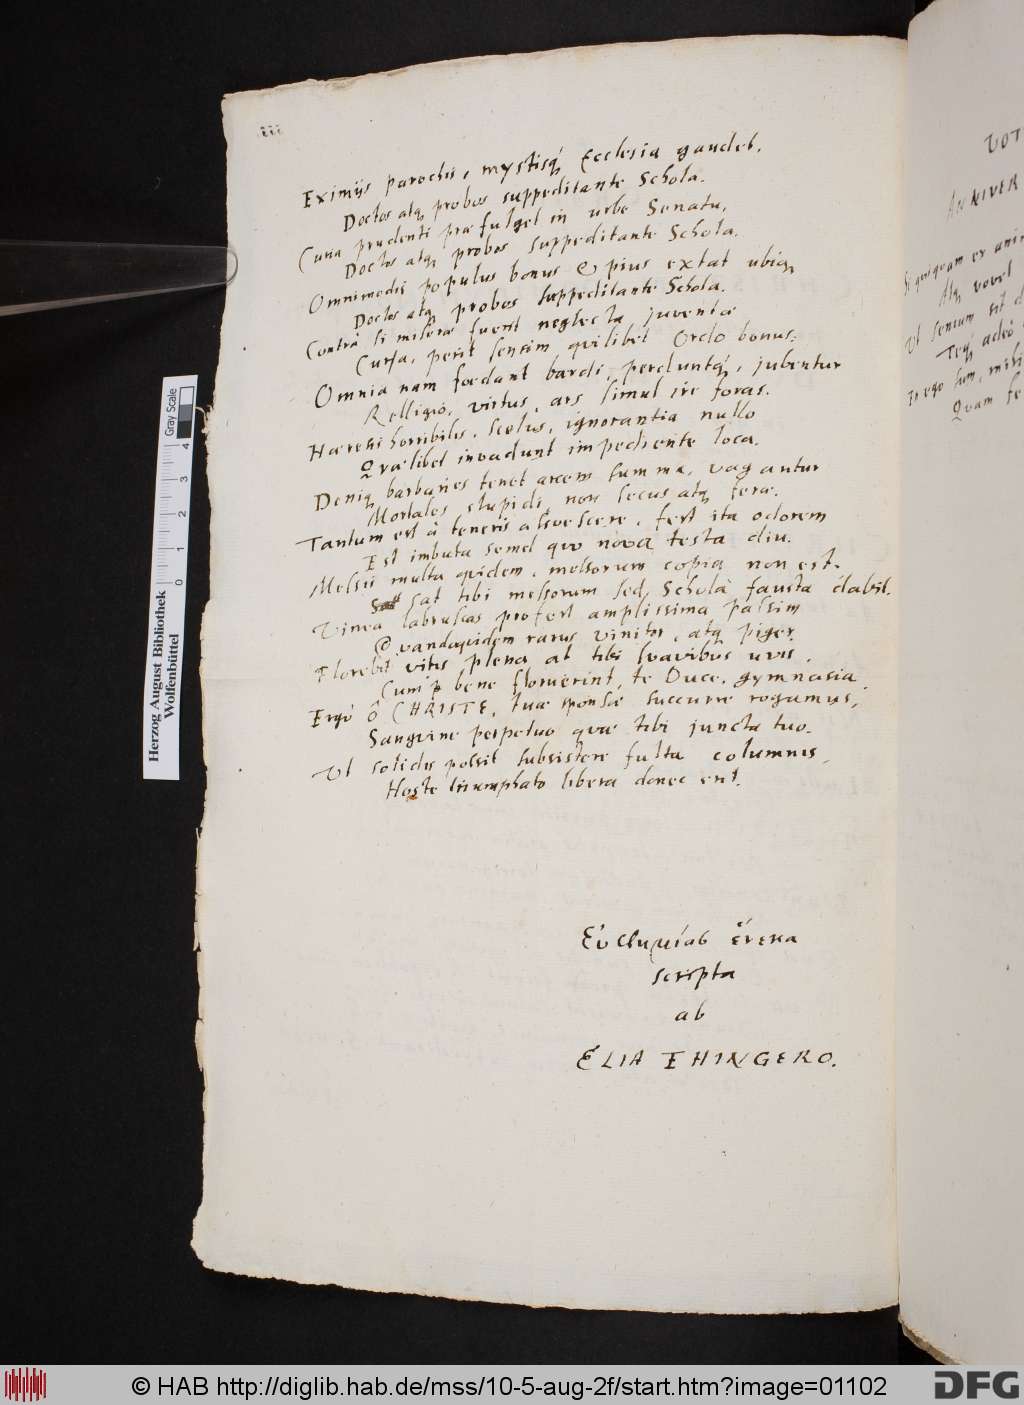 iii
Eximijs parochis, mystisq́ Ecclesia gaudet,
Doctos atq probos suppeditante Schola.
Curia prudenti præfulget in urbe Senatu,
Doctos atq probos suppeditante Schola.
Omnimodis populus bonus & pius extat ubiq,
Doctos atq probos suppeditante Schola.
Contrà si miseræ fuerit neglecta juventæ
Cura, perit sensim quilibet Ordo bonus:
Omnia nam foedant bardi perduntq́, jubentur
Relligio, virtus, ars simul ire foras.
Hæresis horribilis, scelus, ignorantia nullo
Quælibet invadunt impediente loca.
Deniq barbaries tenet arcem summa, vagantur
Mortales stupidi, non secus atq feræ.
Tantum est à teneris assvescere, fert ita odorem
Est imbuta semel quo nova testa diu.
Messis multa quidem, messorum copia non est,
sat tibi messorum sed Schola fausta dabit.
Vinea labruscas profert amplissima passim
Quandoquidem rarus vinitor, atq piger.
Florebit vitis plena at tibi svavibus uvis,
Cum bene floruerint, te Duce, gymnasia
Ergò ô CHRISTE, tuæ sponsæ succurre rogamus,
Sangvine perpetuo quæ tibi juncta tuo.
Ut solidis possit subsistere fulta columnis,
Hoste triumphato libera donec erit.
ἕνεκα
scripta
ab
ELIA EHINGERO.
VOT
ANNIVER
Si quisquam ex anim
Atq vovet
Ut senium sit
Teq́ adeò
Is ego sum, mihi
Quam fe
Gray Scale
0 1 2 3 4
Herzog August Bibliothek
Wolfenbüttel
© HAB http://diglib.hab.de/mss/10-5-aug-2f/start.htm?image=01102
DFG